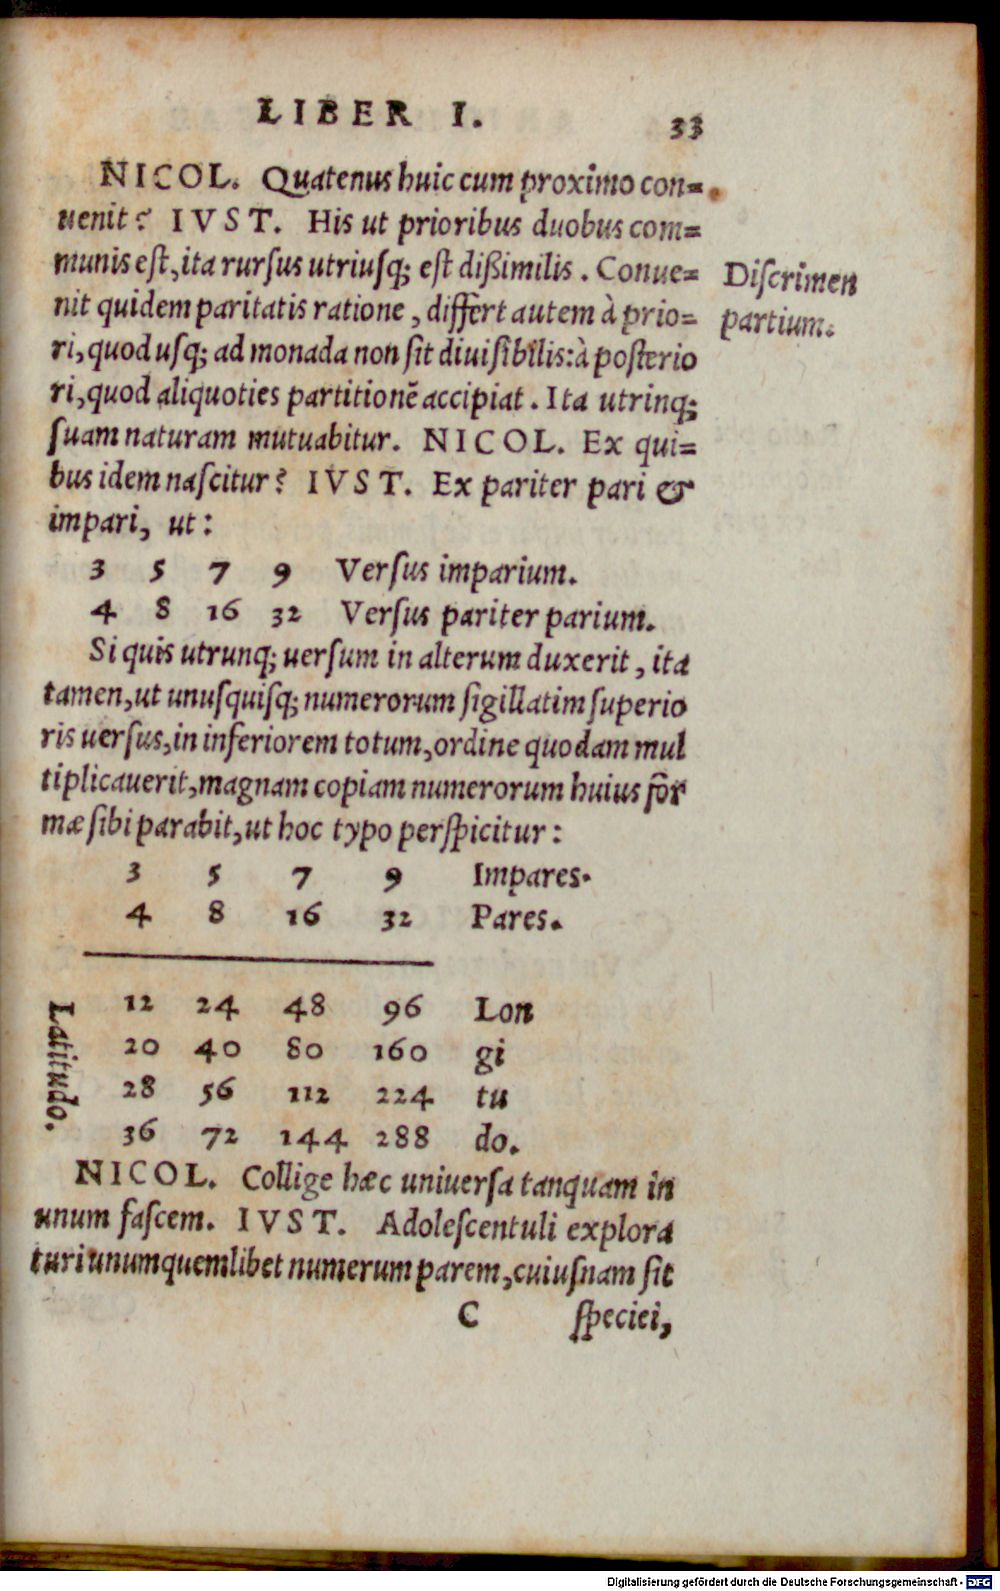 LIBER I.
33
NICOL. Quatenus huic cum proximo con=
uenit? IVST. His ut prioribus duobus com=
munis est, ita rursus utriusq; est dißimilis. Conue=
nit quidem paritatis ratione, differt autem à prio=
ri, quod usq; ad monada non sit diuisibilis: à posterio
ri, quod aliquoties partitionẽ accipiat. Ita utrinq;
suam naturam mutuabitur. NICOL. Ex qui=
bus idem nascitur? IVST. Ex pariter pari &
impari, ut:
Discrimen
partium.
3 5 7 9 Versus imparium.
4 8 16 32 Versus pariter parium.
Si quis utrunq; uersum in alterum duxerit, ita
tamen, ut unusquisq; numerorum sigillatim superio
ris uersus, in inferiorem totum, ordine quodam mul
tiplicauerit, magnam copiam numerorum huius for
mæ sibi parabit, ut hoc typo perspicitur:
3 5 7 9 Impares.
4 8 16 32 Pares.
Latitudo.
12 24 48 96 Lon
20 40 80 160 gi
28 56 112 224 tu
36 72 144 288 do.
NICOL. Collige hæc uniuersa tanquam in
unum fascem. IVST. Adolescentuli explora
turi unumquemlibet numerum parem, cuiusnam sit
C speciei,
Digitalisierung gefördert durch die Deutsche Forschungsgemeinschaft - DFG